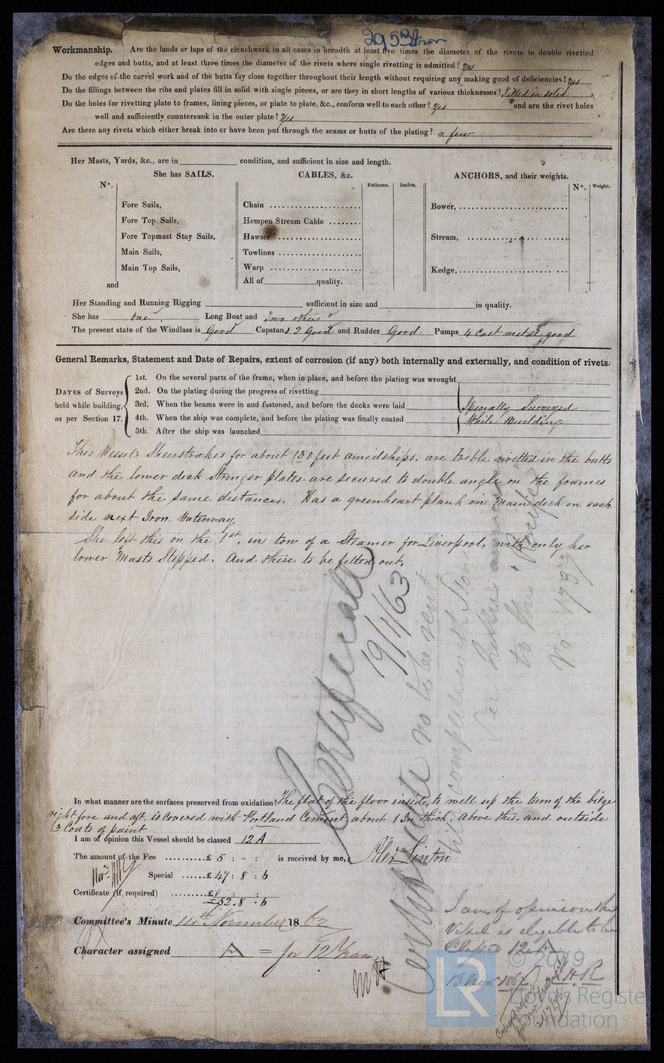 2953 Iron
Workmanship. Are the lands or laps of the clenchwork in all cases in breadth at least five times the diameter of the rivets in double rivetted
edges and butts, and at least three times the diameter of the rivets where single rivetting is admitted? Yes
Do the edges of the carvel work and of the butts fay close together throughout their length without requiring any making good of deficiencies? Yes
Do the fillings between the ribs and plates fill in solid with single pieces, or are they in short lengths of various thicknesses? Filled in solid
Do the holes for rivetting plate to frames, lining pieces, or plate to plate, &c., conform well to each other? Yes and are the rivet holes
well and sufficiently countersunk in the outer plate? Yes
Are there any rivets which either break into or have been put through the seams or butts of the plating? a few
Her Masts, Yards, &c., are in condition, and sufficient in size and length.
She has SAILS. CABLES, &c. ANCHORS, and their weights.
N°. Fathoms. Inches. N°. Weight.
Fore Sails, Chain Bower,
Fore Top Sails, Hempen Stream Cable
Fore Topmast Stay Sails, Hawser Stream,
Main Sails, Towlines
Main Top Sails, Warp Kedge,
and All of quality.
Her Standing and Running Rigging sufficient in size and in quality.
She has one Long Boat and Two others
The present state of the Windlass is Good Capstan 2 Good and Rudder Good Pumps 4 Cast metal good
General Remarks, Statement and Date of Repairs, extent of corrosion (if any) both internally and externally, and condition of rivets.
DATES of Surveys held while building, as per Section 17.
1st. On the several parts of the frame, when in place, and before the plating was wrought
2nd. On the plating during the progress of rivetting
3rd. When the beams were in and fastened, and before the decks were laid
4th. When the ship was complete, and before the plating was finally coated
5th. After the ship was launched
Specially Surveyed
While Building
This Vessel's Sheerstrakes for about 130 feet amidships. are treble rivetted in the butts
and the lower deck Stringer plates are secured to double angle on the frames
for about the same distance. Has a greenheart plank in main deck on each
side next Iron Waterway.
She left this on the 1st in tow of a Steamer for Liverpool, with only her
lower Masts Stepped. And there to be fitted out.
19/1/63
Certificate no to be sent
to this
No 4737
In what manner are the surfaces preserved from oxidation? The flat of the floor inside, to well up the turn of the bilge
right fore and aft. is Covered with Portland Cement about 1 In thick. above this and outside
3 Coats of paint
I am of opinion this Vessel should be classed 12 A
The amount of the Fee £ 5 : - : is received by me,
Special £ 47 : 8 : 6
Certificate (if required) £
£52 . 8 . 6
Committee's Minute 14th November 1862
Character assigned A = for 12 Years
I am of opinion this
Vessel is eligible to be
Classed 12 A
13 Nov 1862
LR
© 2019
Lloyd's Register
Foundation